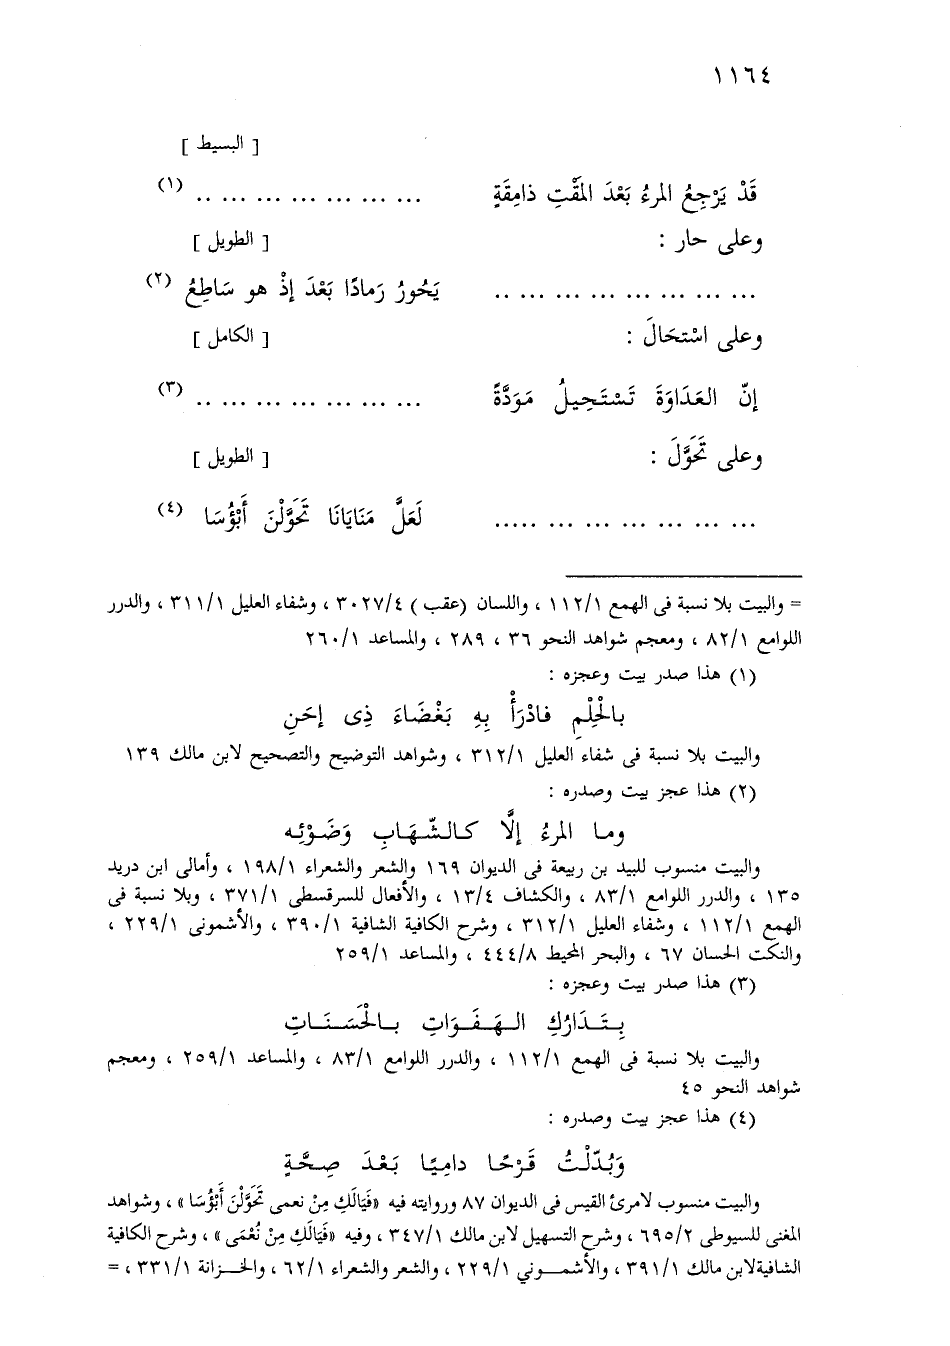 ١١٦٤
[ البسيط ]
قَدْ يَرْجِعُ المرءُ بَعْدَ المَقْتِ ذامِقَةٍ ... ... ... ... ... ... .. (١)
وعلى حار : [ الطويل ]
... ... ... ... ... ... ... .. يَحُورُ رَمادًا بَعْدَ إذْ هو سَاطِعُ (٢)
وعلى اسْتحَالَ : [ الكامل ]
إنّ العَدَاوَةَ تَسْتَحِيلُ مَوَدَّةً ... ... ... ... ... ... .. (٣)
وعلى تَحَوَّلَ : [ الطويل ]
... ... ... ... ... ... ..... لَعَلَّ مَنَايَانَا تَحَوَّلْنَ أَبْؤُسَا (٤)
= والبيت بلا نسبة فى الهمع ١١٢/١ ، واللسان (عقب) ٣٠٢٧/٤ ، وشفاء العليل ٣١١/١ ، والدرر
اللوامع ٨٢/١ ، ومعجم شواهد النحو ٣٦ ، ٢٨٩ ، والمساعد ٢٦٠/١
(١) هذا صدر بيت وعجزه :
بالْحِلْمِ فادْرَأْ بِهِ بَغْضَاءَ ذِى إحَنِ
والبيت بلا نسبة فى شفاء العليل ٣١٢/١ ، وشواهد التوضيح والتصحيح لابن مالك ١٣٩
(٢) هذا عجز بيت وصدره :
وما المرءُ إلَّا كالشِّهَابِ وَضَوْئِه
والبيت منسوب للبيد بن ربيعة فى الديوان ١٦٩ والشعر والشعراء ١٩٨/١ ، وأمالى ابن دريد
١٣٥ ، والدرر اللوامع ٨٣/١ ، والكشاف ١٣/٤ ، والأفعال للسرقسطى ٣٧١/١ ، وبلا نسبة فى
الهمع ١١٢/١ ، وشفاء العليل ٣١٢/١ ، وشرح الكافية الشافية ٣٩٠/١ ، والأشمونى ٢٢٩/١ ،
والنكت الحسان ٦٧ ، والبحر المحيط ٤٤٤/٨ ، والمساعد ٢٥٩/١
(٣) هذا صدر بيت وعجزه :
بِتَدَارُكِ الهَفَوَاتِ بالْحَسَنَاتِ
والبيت بلا نسبة فى الهمع ١١٢/١ ، والدرر اللوامع ٨٣/١ ، والمساعد ٢٥٩/١ ، ومعجم
شواهد النحو ٤٥
(٤) هذا عجز بيت وصدره :
وَبُدِّلْتُ قَرْحًا دامِيًا بَعْدَ صِحَّةٍ
والبيت منسوب لامرئ القيس فى الديوان ٨٧ وروايته فيه «فَيَالَكِ مِنْ نعمى تَحَوَّلْنَ أَبْؤُسَا» ، وشواهد
المغنى للسيوطى ٦٩٥/٢ ، وشرح التسهيل لابن مالك ٣٤٧/١ ، وفيه «فَيَالَكِ مِنْ نُعْمَى» ، وشرح الكافية
الشافية لابن مالك ٣٩١/١ ، والأشمـوني ٢٢٩/١ ، والشعر والشعراء ٦٢/١ ، والخـزانة ٣٣١/١ ، =